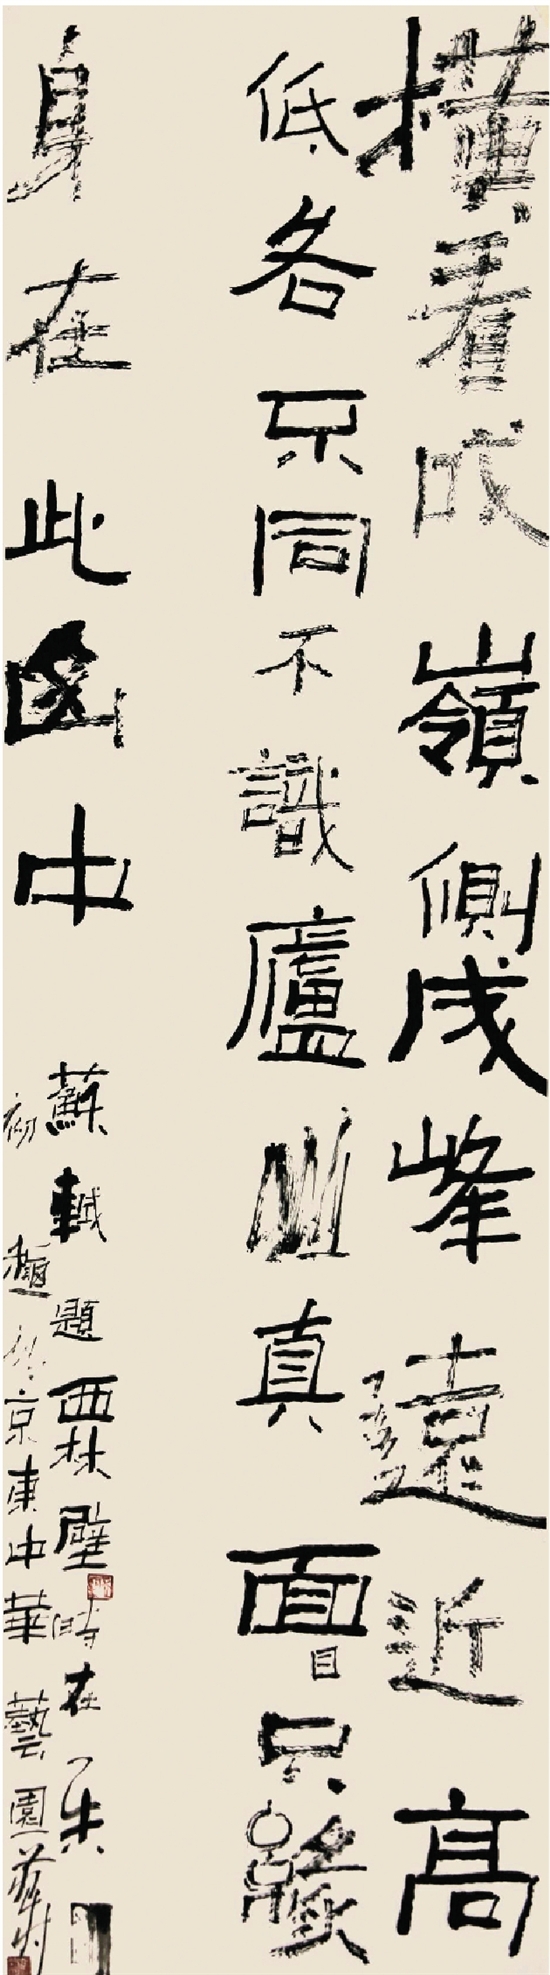 橫看成嶺側成峰遠近高
低各不同不識廬山真面目只緣
身在此山中
蘇軾題西林壁時在
初 京東中華藝園